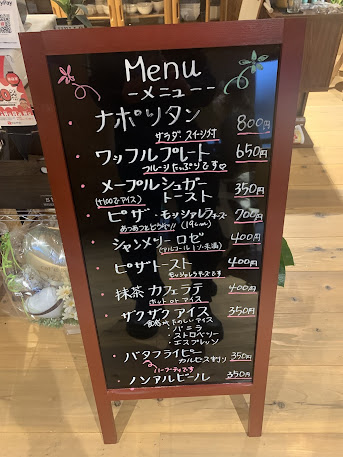 Menu
-メニュー-
・ナポリタン 800円
サラダ・スイーツ付
・ワッフルプレート 650円
フルーツたっぷりです♡
・メープルシュガー
(+100でアイス) トースト 350円
・ピザ・モッツァレラチーズ 700円
あつあつをどうぞ!! (19cm)
・シャンメリー ロゼ 400円
(アルコール1%未満)
・ピザトースト 400円
モッツァレラチーズです
・抹茶カフェラテ 400円
ホット or アイス
・ザクザクアイス 350円
食感がたのしいアイス
・バニラ
・ストロベリー
・エスプレッソ
・バタフライピー 350円
カルピス割り
ハーブティです
・ノンアルビール 350円